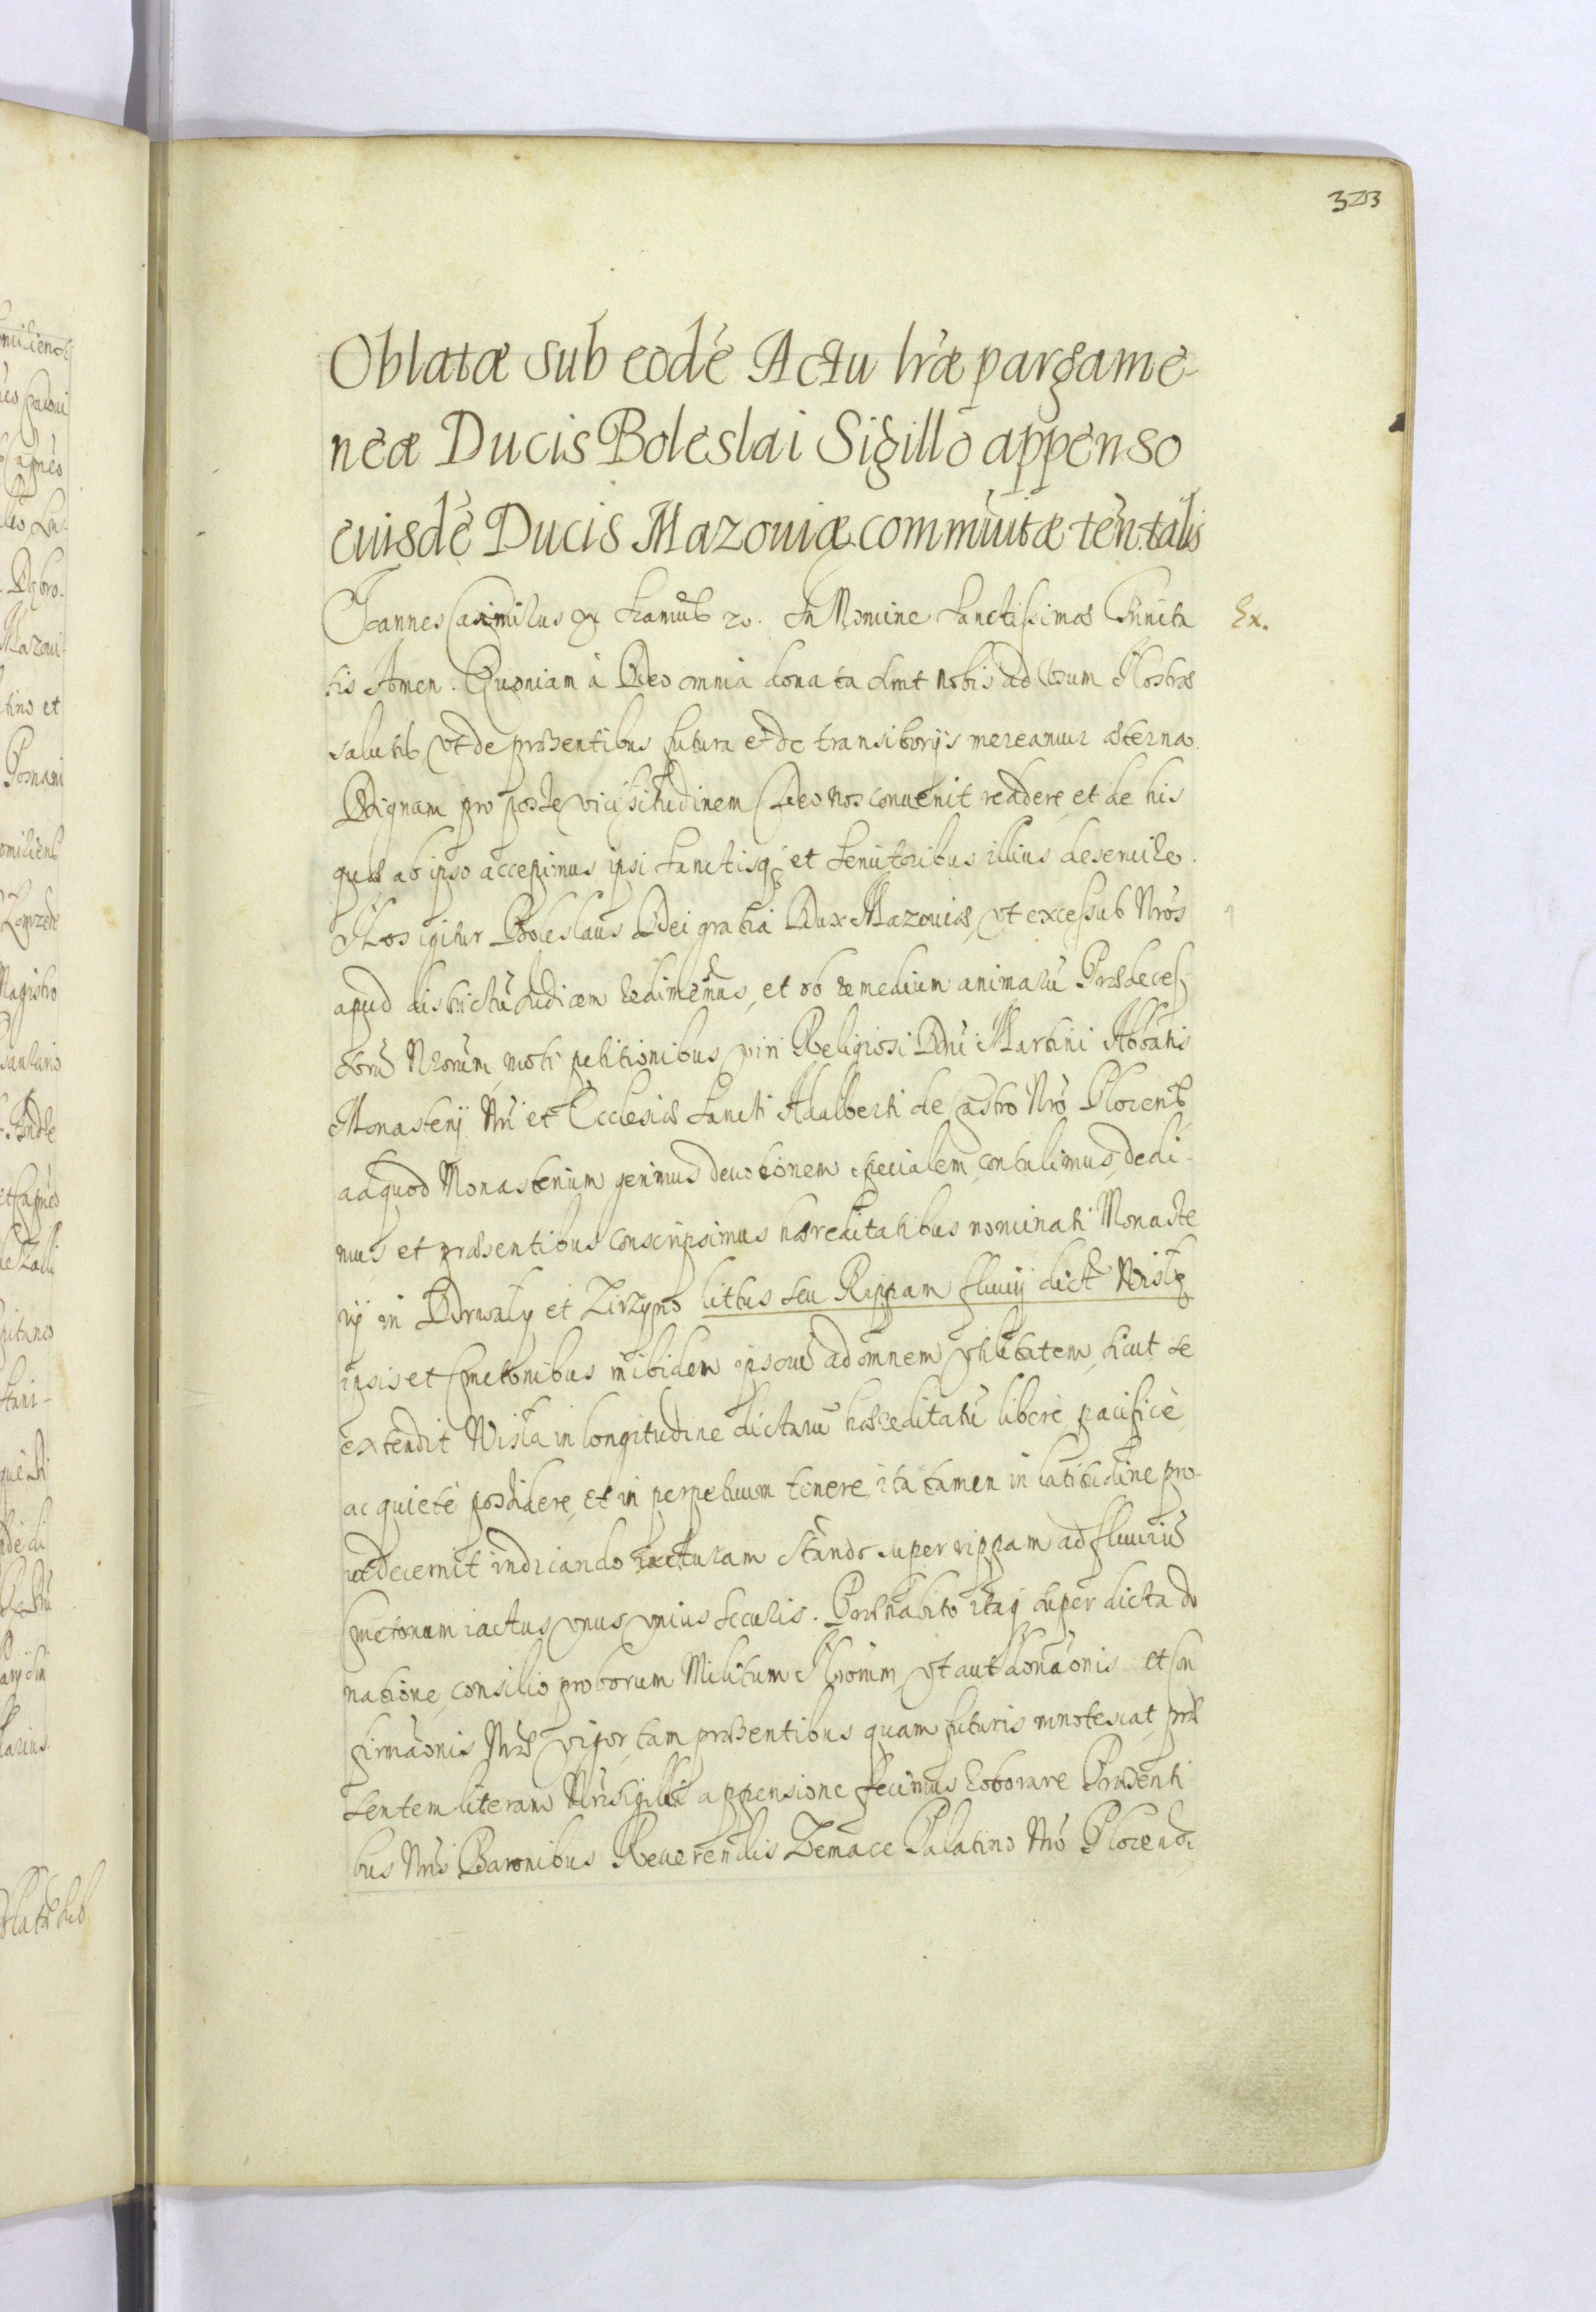 323
Oblatæ sub eodē Actu lræ pargame-
neæ Ducis Boleslai Sigillo appenso
euisdē Ducis Mazouiæ commuitæ ten. talis
Joannes Casimirus & In Nomine Sanctissimæ Trinita Ex.
tis Amen. Quoniam à Deo omnia donata sunt nobis ad Usum Nostræ
salutis, vt de præsentibus futura et de transitorijs mereamur æterna.
Dignam pro posse vicissitudinem Deo nos conuenit reddere, et de his
quæ ab ipso accepimus ipsi Sanctisq; et Seruitoribus illius deseruire.
Nos igitur Boleslaus Dei gratia Dux Mazouiæ, vt excessus Nrōs
apud districtū Judicem redimemus, et ob remedium animarū Prædeces-
sorū Nrorum, moti petitionibus viri Religiosi Dni Martini Abbatis
Monasterij Nri et Ecclesiæ Sancti Adalberti de Castro Nrō Plocens
ad quod Monasterium gerimus deuotionem specialem, contulimus, dedi-
mus et præsentibus conscripsimus hæreditatibus nominati Monaste
rij in Drwały et Zirzyno littus seu Rippam fluuij dicti Wisła
ipsis et Cmetonibus inibidem ipsorū ad omnem vtilitatem, sicut se
extendit Wisła in longitudine dictarū hæreditatū liberè, pacificè,
ac quietè possidere, et in perpetuum tenere, ita tamen in latitudine pro-
ut decernit indicando iacturam stando super rippam ad fluuiū
Cmetonum iactus vnus vnius securis. Præhabito itaq super dicta do
natione, consilio proborum Militum Nrorum, vt aut donaōnis et Con
firmāonis Nræ vigor, tam præsentibus quam futuris innotescat, præ
sentem literam Nri sigilli appensione fecimus roborare Præsenti
bus Nris Baronibus Reuerendis Zemace Palatino Nrō Plocensi